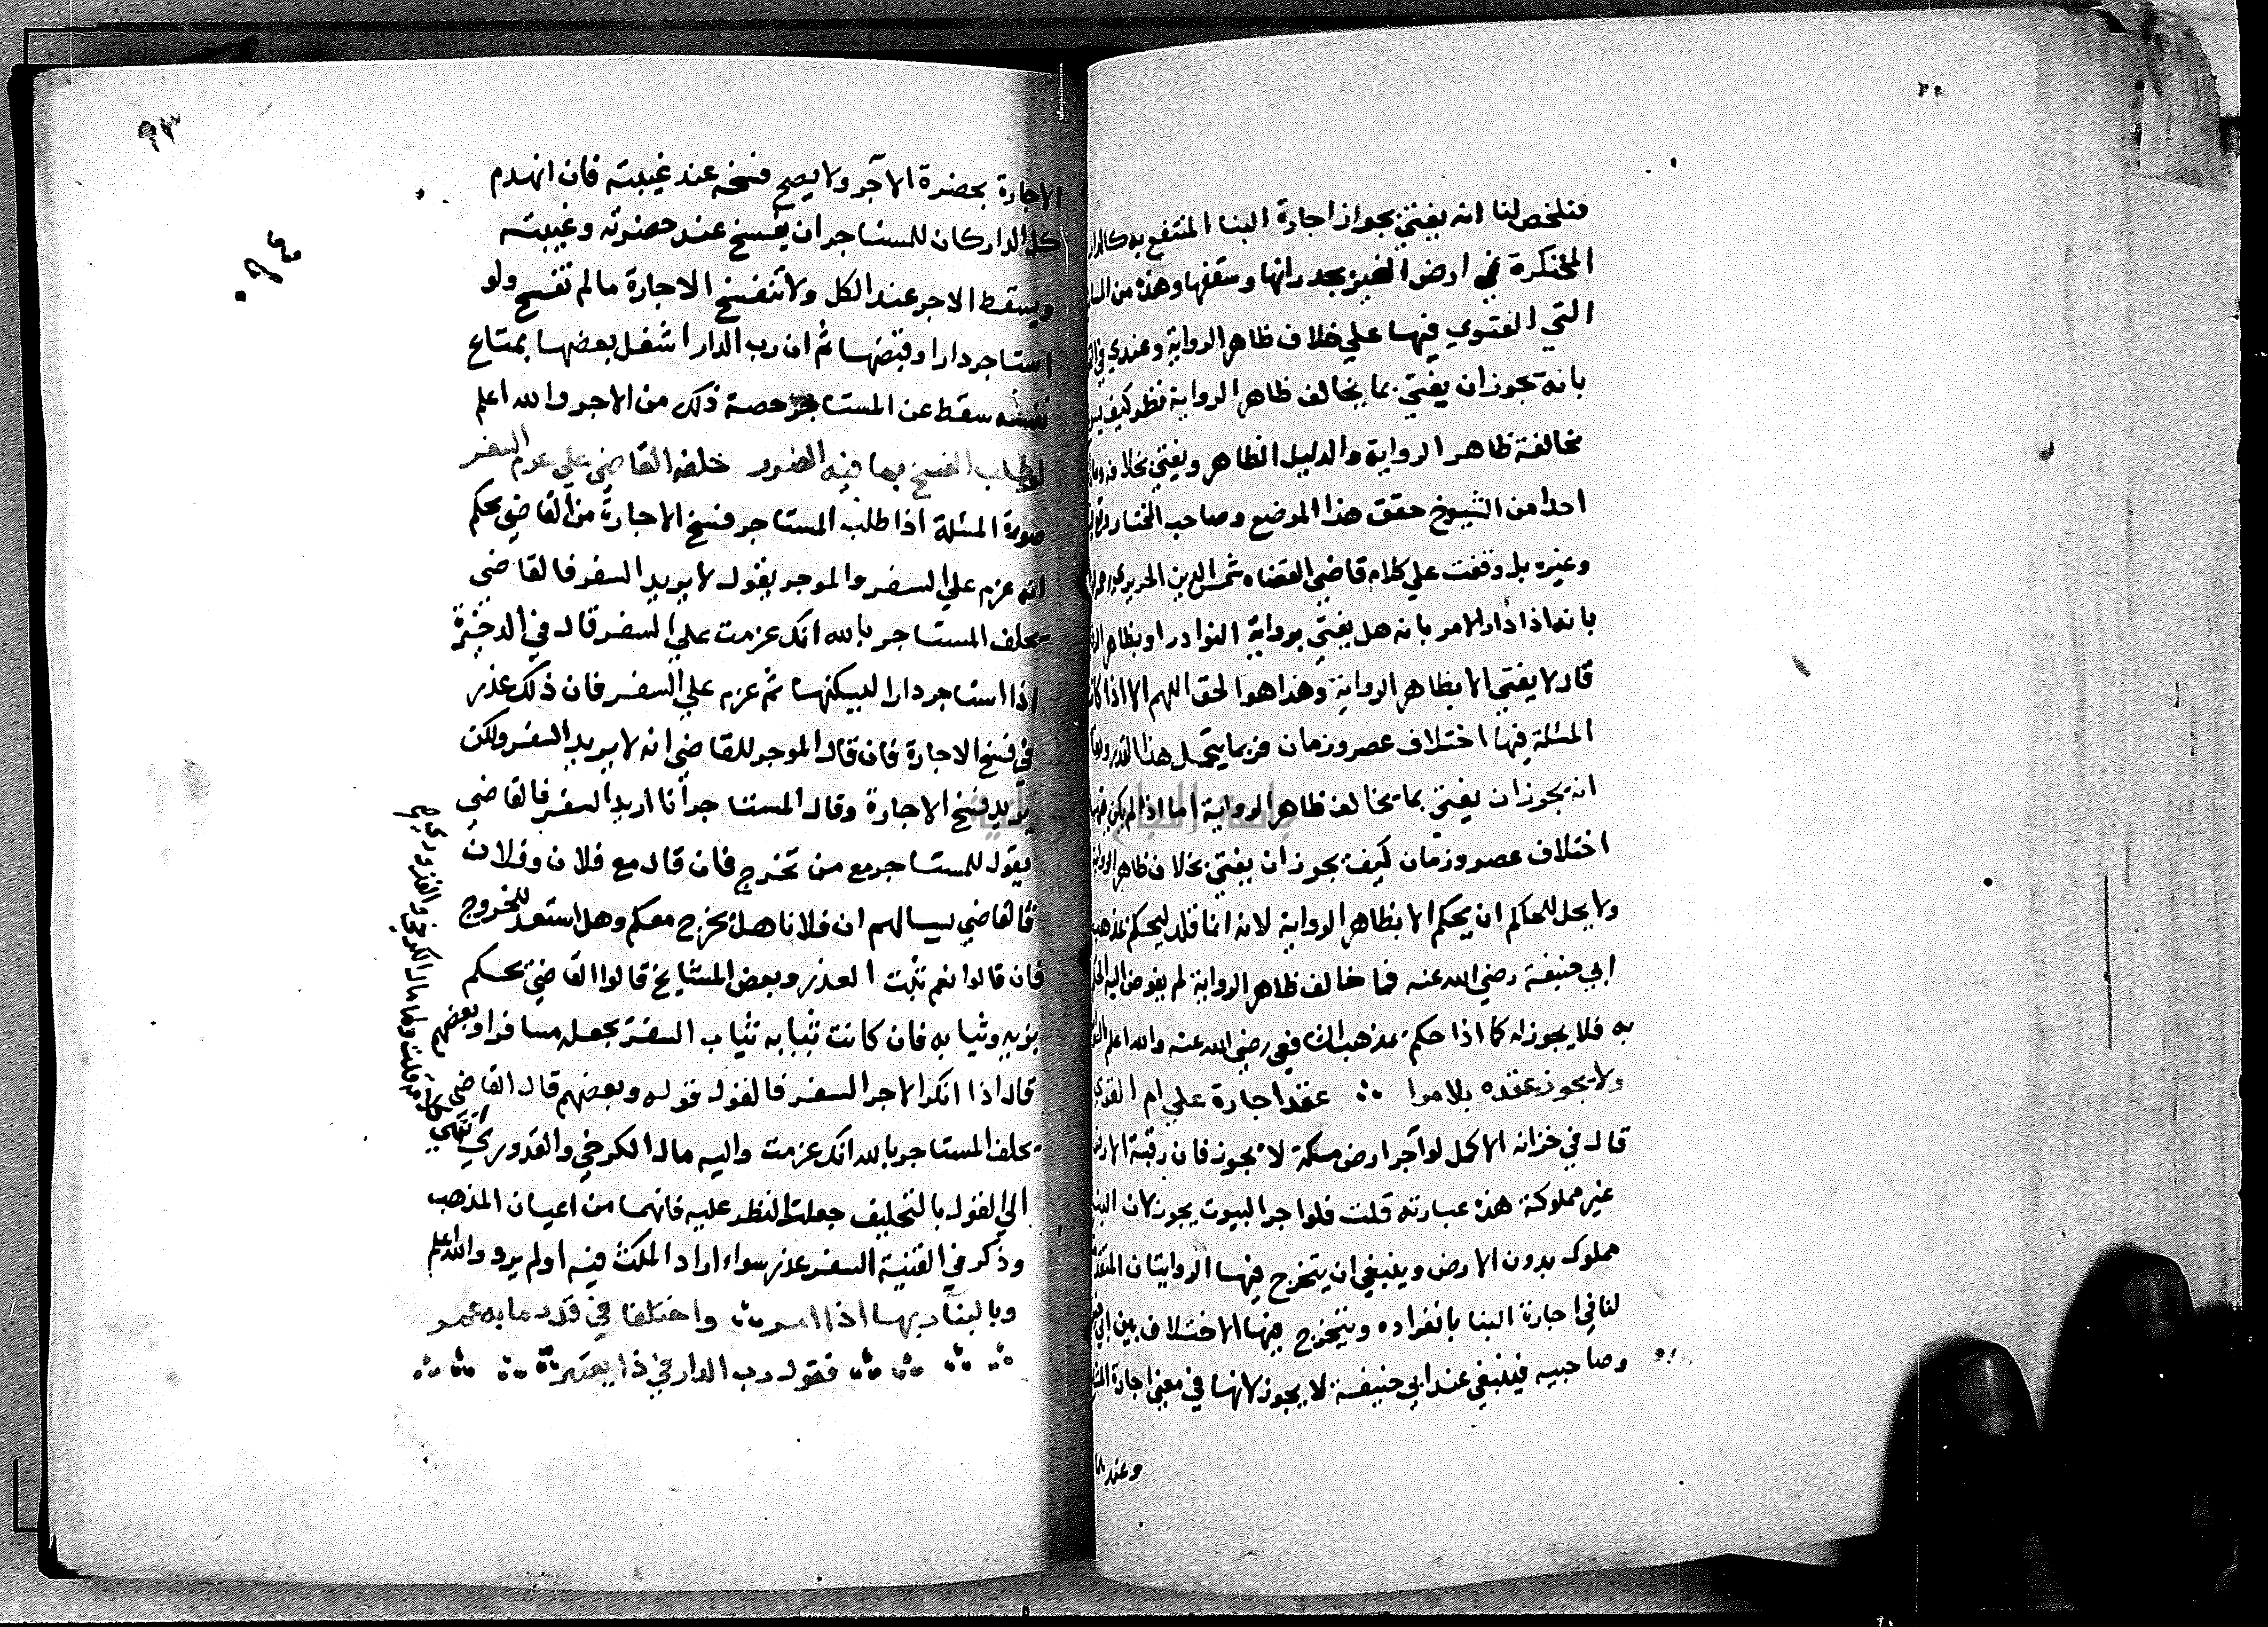 فتلخص لنا انه يفتي بجواز اجارة البنا المنتفع به كالدار
المحتكرة في ارض الغير بجدرانها وسقفها وهذه من
التي الفتوي فيها علي خلاف ظاهر الرواية وعندي في
بانه يجوز ان يفتي بما يخالف ظاهر الرواية نظر كيف
مخالفة ظاهر الرواية والدليل الظاهر ويفتي بخلافه
احدا من الشيوخ حقق هذا الموضع وصاحب المختار
وغيره بل وقفت علي كلام قاضي القضاه شمس الدين الحريري
بانه اذا دار الامر بانه هل يفتي برواية النوادر او بظاهر
قال لا يفتي الا بظاهر الرواية وهذا هو الحق اللهم الا اذا كان
المسئلة فيها اختلاف عصر وزمان فربما يتحمل هذا القدر
انه يجوز ان يفتي بما يخالف ظاهر الرواية اما اذا لم يكن فيها
اختلاف عصر وزمان كيف يجوز ان يفتي بخلاف ظاهر الرواية
ولا يحل للحاكم ان يحكم الا بظاهر الرواية لانه انما قلد ليحكم بمذهب
ابي حنيفة رضي الله عنه فما خالف ظاهر الرواية لم يفوض اليه الحكم
به فلا يجوز له كما اذا حكم بمذهب الشافعي رضي الله عنه والله اعلم
ولا يجوز عقده بلا مرا عقد اجارة علي ام القري
قال في خزانه الاكمل لو آجر ارض مكة لا يجوز فان رقبة الارض
غير مملوكة هذه عبارته قلت فلو اجر البيوت يجوز لان البنا
مملوك بدون الارض وينبغي ان يتخرج فيها الروايتان
لنا في اجارة البنا بانفراده ويتخرج فيها الاختلاف بين ابي
وصاحبيه فينبغي عند ابي حنيفة لا يجوز لانها في معني اجارة
وعندهما
٩٣
الاجارة بحضرة الآجر ولا يصح فسخه عند غيبته فان انهدم
كل الدار كان للمستاجر ان يفسخ عند حضرته وغيبته
ويسقط الاجر عند الكل ولا تنفسخ الاجارة ما لم تفسخ ولو
استاجر دارا وقبضها ثم ان رب الدار اشغل بعضها بمتاع
نفسه سقط عن المستاجر حصة ذلك من الاجر والله اعلم
لو طلب الفسخ بما فيه الضرر حلفه القاضي علي عزم السفر
صورة المسئلة اذا طلب المستاجر فسخ الاجارة من القاضي بحكم
انه عزم علي السفر والموجر يقول لا يريد السفر فالقاضي
يحلف المستاجر بالله انك عزمت علي السفر قال في الدخيرة
اذا استاجر دارا ليسكنها ثم عزم علي السفر فان ذلك عذر
في فسخ الاجارة فان قال الموجر للقاضي انه لا يريد السفر ولكن
يريد فسخ الاجارة وقال المستاجر انا اريد السفر فالقاضي
يقول للمستاجر مع من تخرج فان قال مع فلان وفلان
فالقاضي يسالهم ان فلانا هل يخرج معكم وهل استعد للخروج
فان قالوا نعم ثبت العذر وبعض المشايخ قالوا القاضي يحكم
بزيه وثيابه فان كانت ثيابه ثياب السفر يجعله مسافرا وبعضهم
قال اذا انكر الاجر السفر فالقول قوله وبعضهم قال القاضي
يحلف المستاجر بالله انك عزمت واليه مال الكرخي والقدوري انتهي
الي القول بالتحليف جعلت النظر عليه فانهما من اعيان المذهب
وذكر في القنية السفر عذر سواء اراد المكث فيه او لم يرد والله اعلم
وبالبنا ربها اذا امر واختلفا في قدر ما به عمر
فقول رب الدار في ذا يعتبر